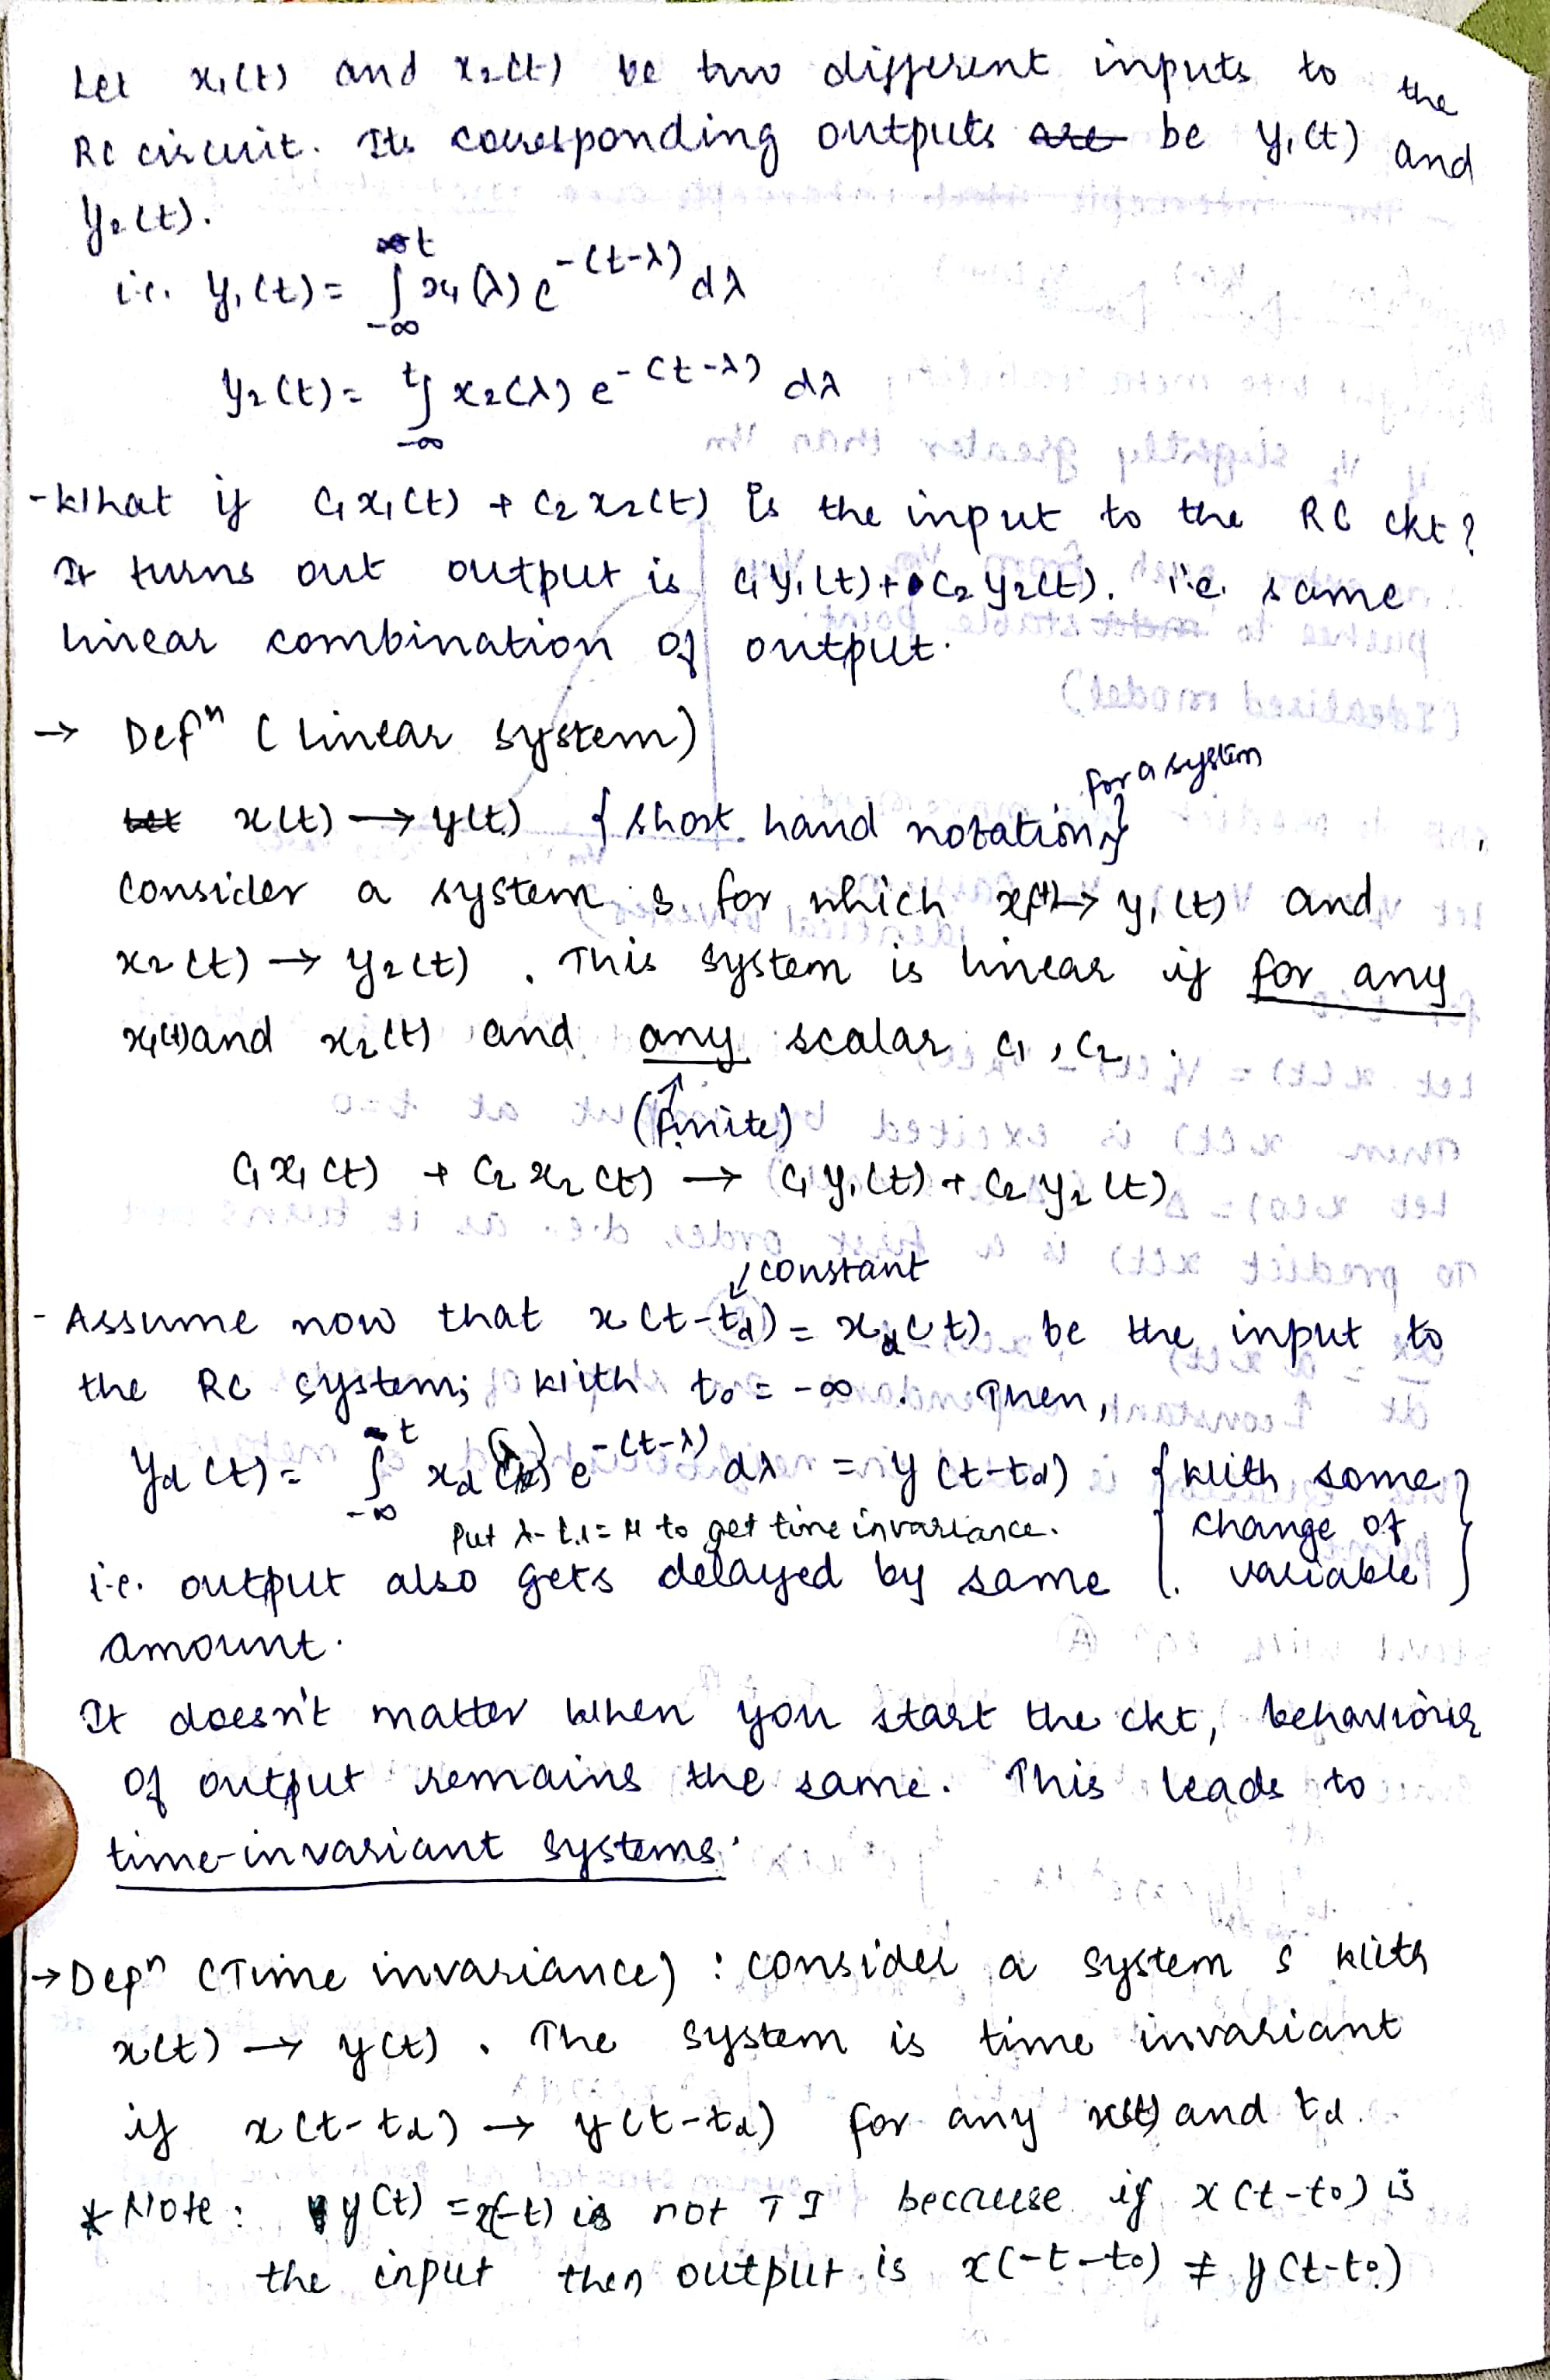 Let x₁(t) and x₂(t) be two different inputs to the
RC circuit. Its corresponding outputs ~~are~~ be y₁(t) and
y₂(t).
i.e. y₁(t) = ∫_{-∞}^{t} x₁(λ) e^{-(t-λ)} dλ
y₂(t) = ∫_{-∞}^{t} x₂(λ) e^{-(t-λ)} dλ
- What if c₁x₁(t) + c₂x₂(t) is the input to the RC ckt?
It turns out output is c₁y₁(t) + c₂y₂(t). i.e. same
linear combination of output.
→ Defⁿ (Linear system)
~~Let~~ x(t) → y(t) {short hand notation for a system}
Consider a system s for which x₁(t) → y₁(t) and
x₂(t) → y₂(t). This system is linear if for any
x₁(t) and x₂(t) and any scalar c₁, c₂.
↑
(finite)
c₁x₁(t) + c₂x₂(t) → c₁y₁(t) + c₂y₂(t)
↙ constant
- Assume now that x(t-t_d) = x_d(t) be the input to
the RC system; with t₀ = -∞. Then,
y_d(t) = ∫_{-∞}^{t} x_d(λ) e^{-(t-λ)} dλ = y(t-t_d) {with some change of variable}
Put λ-t_d = μ to get time invariance.
i.e. output also gets delayed by same
amount.
It doesn't matter when you start the ckt, behaviour
of output remains the same. This leads to
time-invariant systems.
→ Defⁿ (Time invariance) : consider a system s with
x(t) → y(t). The system is time invariant
if x(t-t_d) → y(t-t_d) for any x(t) and t_d.
* Note: y(t) = x(-t) is not TI because if x(t-t₀) is
the input then output is x(-t-t₀) ≠ y(t-t₀)